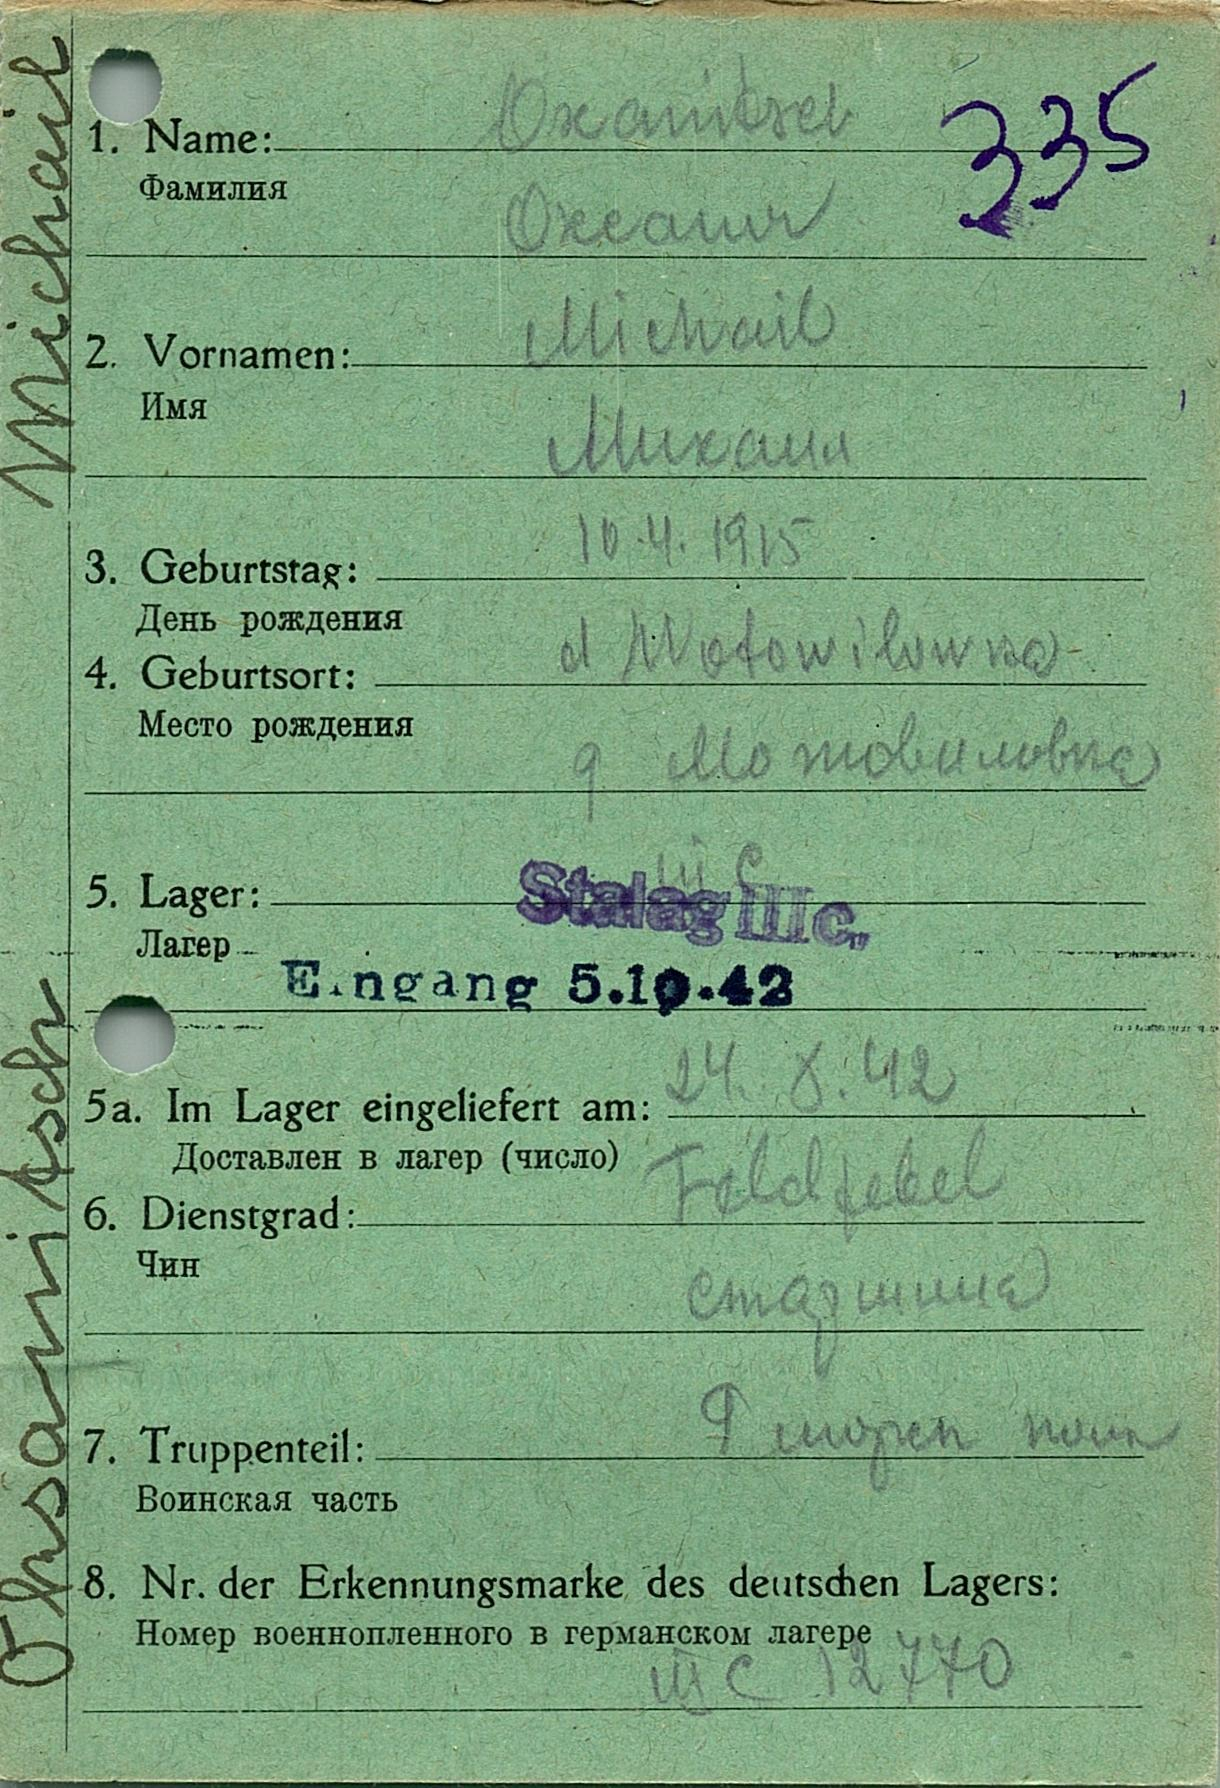 Michail
Oksanitsch
335
1. Name: Oxanitsch
Фамилия
2. Vornamen: Michail
Имя
Михаил
3. Geburtstag: 10.4.1915
День рождения
4. Geburtsort: d Motowilowka
Место рождения
д Мотовиловка
5. Lager: III C
Stalag III c.
Лагер
Eingang 5.10.42
5a. Im Lager eingeliefert am: 24. X. 42
Доставлен в лагер (число)
6. Dienstgrad: Feldfebel
Чин
старшина
7. Truppenteil:
Воинская часть
8. Nr. der Erkennungsmarke des deutschen Lagers:
Номер военнопленного в германском лагере
III C 12770